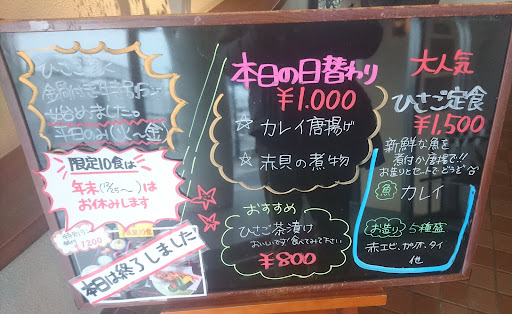 ひさご
始めました。
平日のみ(火~金)
限定10食は
年末(12/25~)は
お休みします
¥1200
本日は終了しました
本日の日替わり
¥1.000
☆ カレイ唐揚げ
☆ 赤貝の煮物
おすすめ
ひさご茶漬け
おいしいです!食べてみて下さい
¥800
大人気
ひさご定食
¥1,500
新鮮な魚を
煮付か唐揚で!!
お造りとセットでどうぞ
魚 カレイ
お造り 5種盛
赤エビ、カツオ、タイ
他